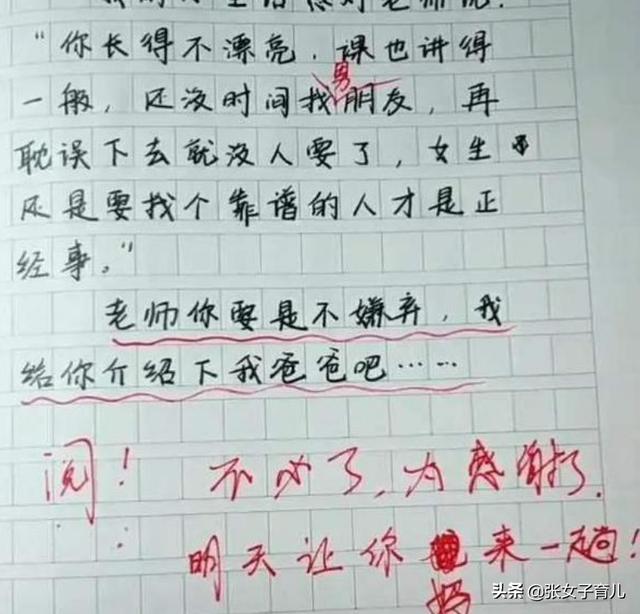 老师说:
“你长得不漂亮,课也讲得
男
一般,还没时间找朋友,再
耽误下去就没人要了,女生
还是要找个靠谱的人才是正
经事。”
老师你要是不嫌弃,我
给你介绍下我爸爸吧……
阅! 不必了,感谢了.
明天让你来一趟!
妈
头条 @张女子育儿